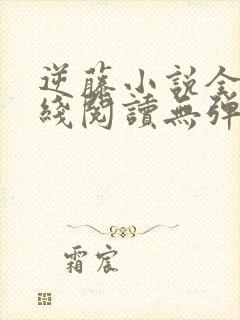 逆藤小說全
綫閱讀無彈
霜宸